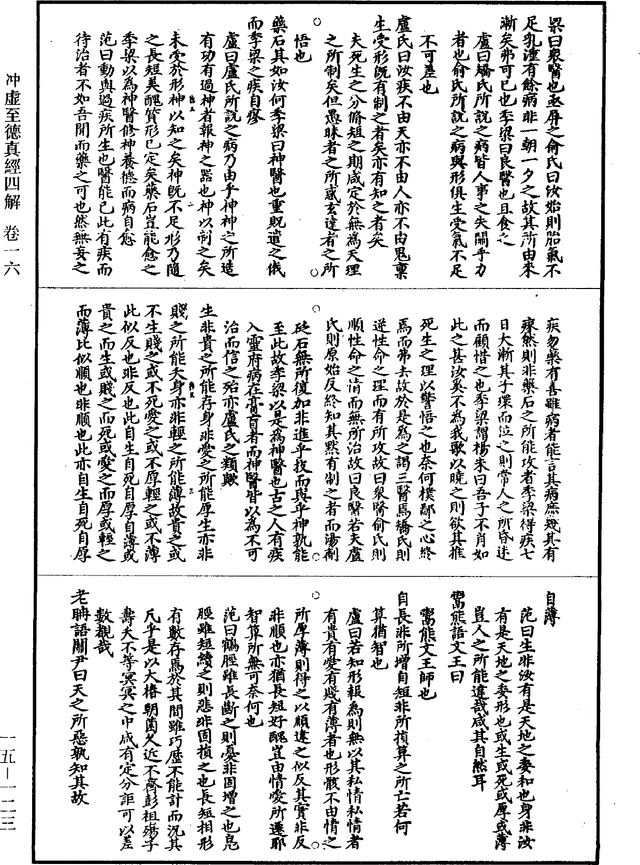 梁曰衆醫也亟屏之俞氏曰汝始則胎氣不
足乳湩有餘病非一朝一夕之故其所由來
漸矣弗可已也季梁曰良醫也且食之
盧曰矯氏所說之病皆人事之失關乎力
者也俞氏所說之病與形俱生受氣不足
不可差也
盧氏曰汝疾不由天亦不由人亦不由鬼稟
生受形既有制之者矣亦有知之者矣
夫死生之分脩短之期咸定於無為天理
之所制矣但愚昧者之所惑玄達者之所
悟也
藥石其如汝何季梁曰神醫也重貺遣之俄
而季梁之疾自瘳
盧曰盧氏所說之病乃由乎神神之所造
有功有過神者報神之器也神以制之矣
未受於形神以知之矣神既不足形乃隨
之長短美醜質形已定矣藥石豈能愈之
季梁以為神醫修神養德而病自愈
范曰動與過疾所生也醫能已此有疾而
待治者不如吾聞而藥之可也然無妄之
冲虛至德真經四解 卷一六
疾勿藥有喜雖病者能言其病庶幾其有
瘳然則非藥石之所能攻者季梁得疾七
日大漸其子環而泣之則常人之所昏迷
而顧惜之也季梁謂楊朱曰吾子不肖如
此之甚汝奚不為我歌以曉之則欲其推
死生之理以警悟之也奈何樸鄙之心終
焉而弗去故於是為之謁三醫焉矯氏則
逆性命之理而有所攻故曰衆醫俞氏則
順性命之情而無所治故曰良醫若夫盧
氏則原始反終知其默有制之者而湯劑
砭石無所復加非進乎技而與乎神孰能
至此故季梁以是為神醫也古之人有疾
入靈府病在膏肓者而神醫皆以為不可
治而信之殆亦盧氏之類歟
生非貴之所能存身非愛之所能厚生亦非
賤之所能夭身亦非輕之所能薄故貴之或
不生賤之或不死愛之或不厚輕之或不薄
此似反也非反也此自生自死自厚自薄或
貴之而生或賤之而死或愛之而厚或輕之
而薄比似順也非順也此亦自生自死自厚
自薄
范曰生非汝有是天地之委和也身非汝
有是天地之委形也或生或死或厚或薄
豈人之所能違哉咸其自然耳
鬻熊語文王曰
鬻熊文王師也
自長非所增自短非所損算之所亡若何
算猶智也
盧曰若知形報為則無以其私情私情者
有貴有愛有賤有薄者也形骸不由情之
所厚薄則得之以順違之似反其實非反
非順也亦猶長短好醜豈由情愛所遷耶
智算所無可奈何也
范曰鶴脛雖長斷之則憂非固增之也鳧
脛雖短續之則悲非固損之也長短相形
有數存焉於其間雖巧歷不能計而況其
凡乎是以大椿朝菌久近不齊彭祖殤子
壽夭不等冥冥之中咸有定分詎可以差
數覩哉
老聃語關尹曰天之所惡孰知其故
一五—一二三